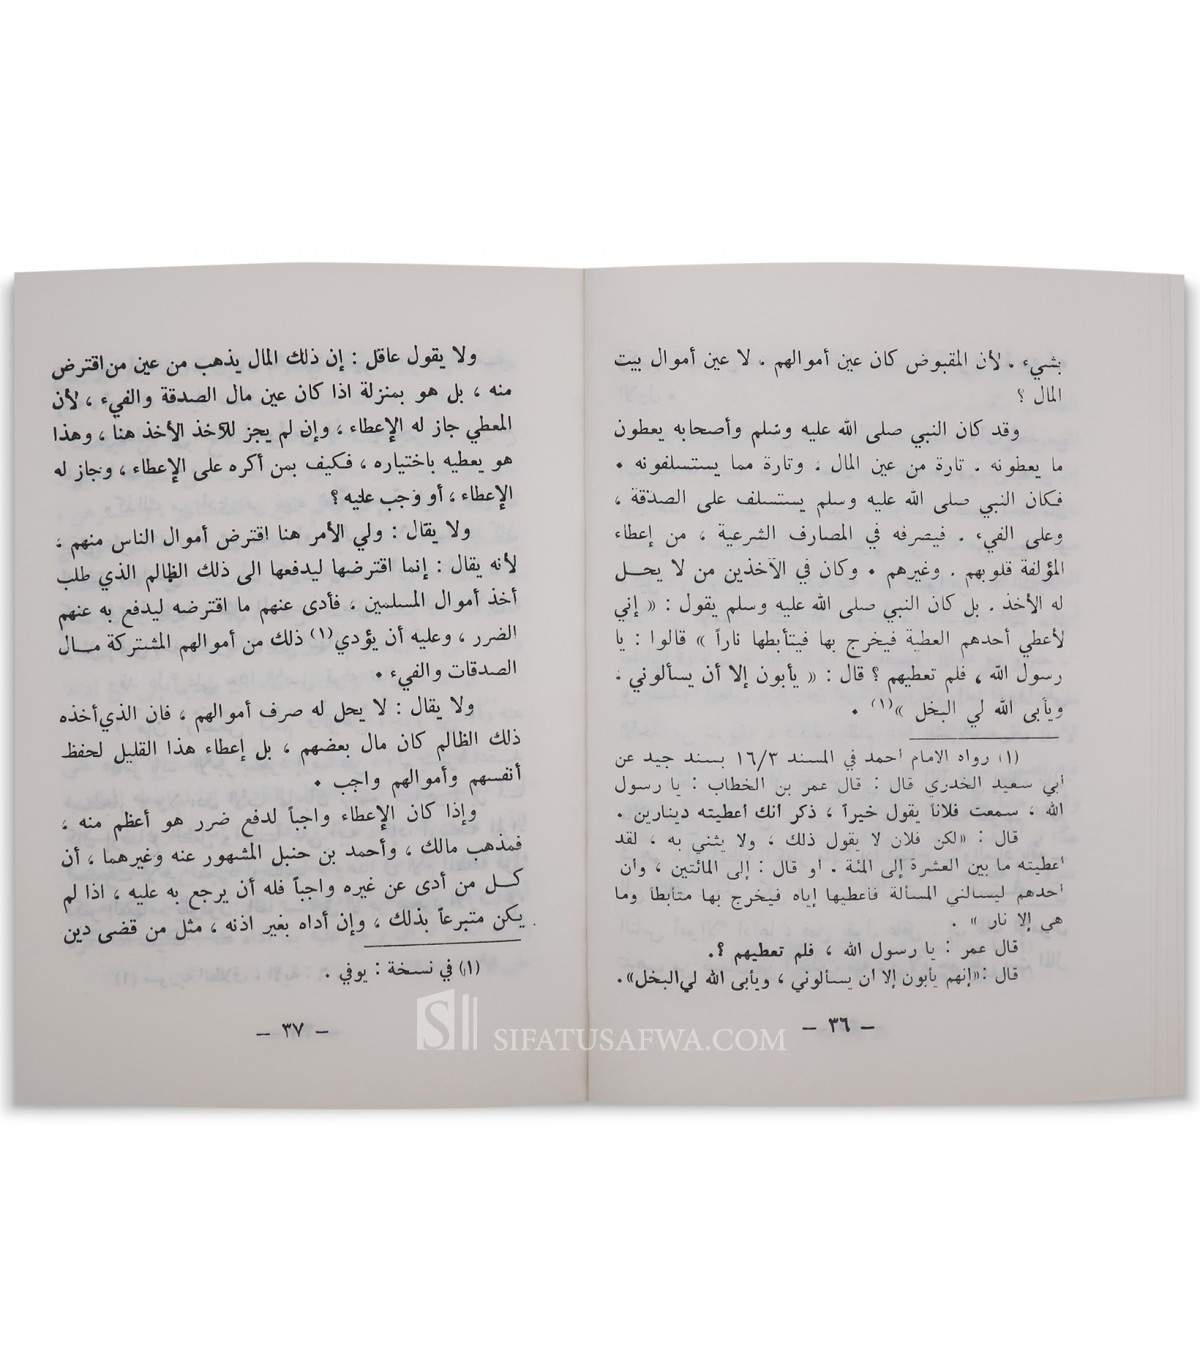 بشيء . لأن المقبوض كان عين أموالهم . لا عين أموال بيت
المال ؟
وقد كان النبي صلى الله عليه وسلم وأصحابه يعطون
ما يعطونه . تارة من عين المال . وتارة مما يستسلفونه .
فكان النبي صلى الله عليه وسلم يستسلف على الصدقة ،
وعلى الفيء . فيصرفه في المصارف الشرعية ، من إعطاء
المؤلفة قلوبهم . وغيرهم . وكان في الآخذين من لا يحل
له الأخذ . بل كان النبي صلى الله عليه وسلم يقول : « إني
لأعطي أحدهم العطية فيخرج بها فيتأبطها ناراً » قالوا : يا
رسول الله ، فلم تعطيهم ؟ قال : « يأبون إلا أن يسألوني ،
ويأبى الله لي البخل »(١) .
(١) رواه الامام أحمد في المسند ١٦/٣ بسند جيد عن
أبي سعيد الخدري قال : قال عمر بن الخطاب : يا رسول
الله ، سمعت فلاناً يقول خيراً ، ذكر انك أعطيته دينارين .
قال : «لكن فلان لا يقول ذلك ، ولا يثني به ، لقد
اعطيته ما بين العشرة إلى المئة . او قال : إلى المائتين ، وان
احدهم ليسالني المسألة فأعطيها إياه فيخرج بها متأبطا وما
هي إلا نار » .
قال عمر : يا رسول الله ، فلم تعطيهم ؟.
قال :«إنهم يأبون إلا ان يسألوني ، ويأبى الله لي البخل».
– ٣٦ –
ولا يقول عاقل : إن ذلك المال يذهب من عين من اقترض
منه ، بل هو بمنزلة اذا كان عين مال الصدقة والفيء ، لأن
المعطي جاز له الإعطاء ، وإن لم يجز للآخذ الأخذ هنا ، وهذا
هو يعطيه باختياره ، فكيف بمن أكره على الإعطاء ، وجاز له
الإعطاء ، أو وجب عليه ؟
ولا يقال : ولي الأمر هنا اقترض أموال الناس منهم ،
لأنه يقال : إنما اقترضها ليدفعها الى ذلك الظالم الذي طلب
أخذ أموال المسلمين ، فأدى عنهم ما اقترضه ليدفع به عنهم
الضرر ، وعليه أن يؤدي(١) ذلك من أموالهم المشتركة مال
الصدقات والفيء .
ولا يقال : لا يحل له صرف أموالهم ، فان الذي أخذه
ذلك الظالم كان مال بعضهم ، بل إعطاء هذا القليل لحفظ
أنفسهم وأموالهم واجب .
وإذا كان الإعطاء واجباً لدفع ضرر هو أعظم منه ،
فمذهب مالك ، وأحمد بن حنبل المشهور عنه وغيرهما ، أن
كل من أدى عن غيره واجباً فله أن يرجع به عليه ، اذا لم
يكن متبرعاً بذلك ، وإن أداه بغير اذنه ، مثل من قضى دين
(١) في نسخة : يوفي .
– ٣٧ –
SIFATUSAFWA.COM